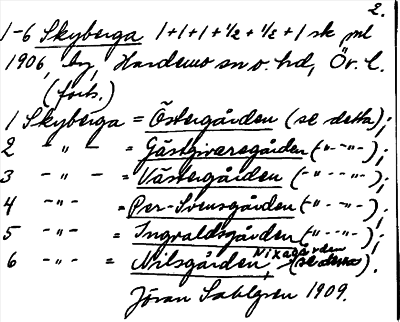 2.
1-6 Skyberga 1+1+1+1/2+1/2+1 sk ml
1906, by, Hardemo sn o. hd, Ör. l.
(forts.)
1 Skyberga = Östergården (se detta);
2 -"- = Gästgivaregården (-"- -"-);
3 -"- = Västergården (-"- -"-);
4 -"- = Per-Svensgården (-"- -"-);
5 -"- = Ingvaldsgården (-"- -"-);
6 -"- = Nilsgården, Nixagården (se dessa).
Jöran Sahlgren 1909.